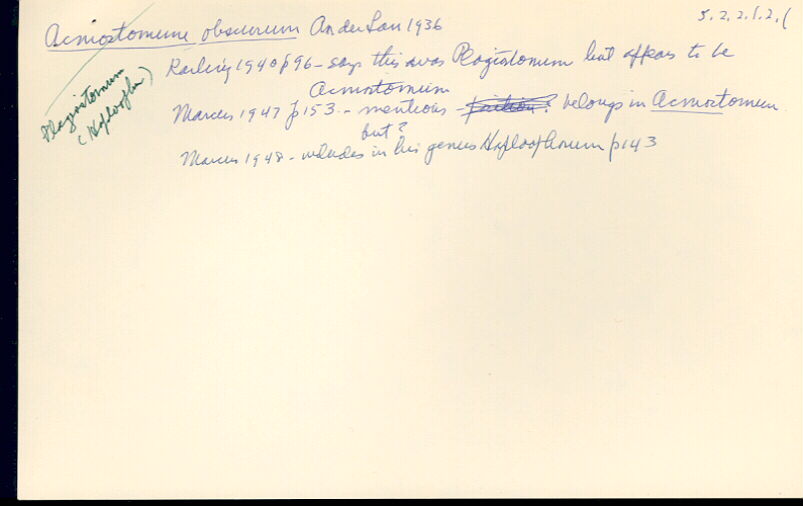 5.2.2.1.2.(
Acmostomum obscurum An der Lan 1936
Plagiostomum
(Haploopho)
Karling 1940 p96 - says this was Plagiostomum but appears to be
Acmostomum
Marcus 1947 p153 - mentions - belongs in Acmostomum
but?
Marcus 1948 - includes in his genus Haploophorum p143